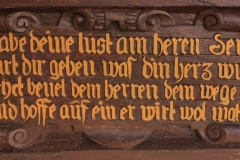 abe deine lust am heren Der
rt dir geben was din herz wu
het bevel dem herren dem wege
nd hoffe auf ein er wirt wol mat